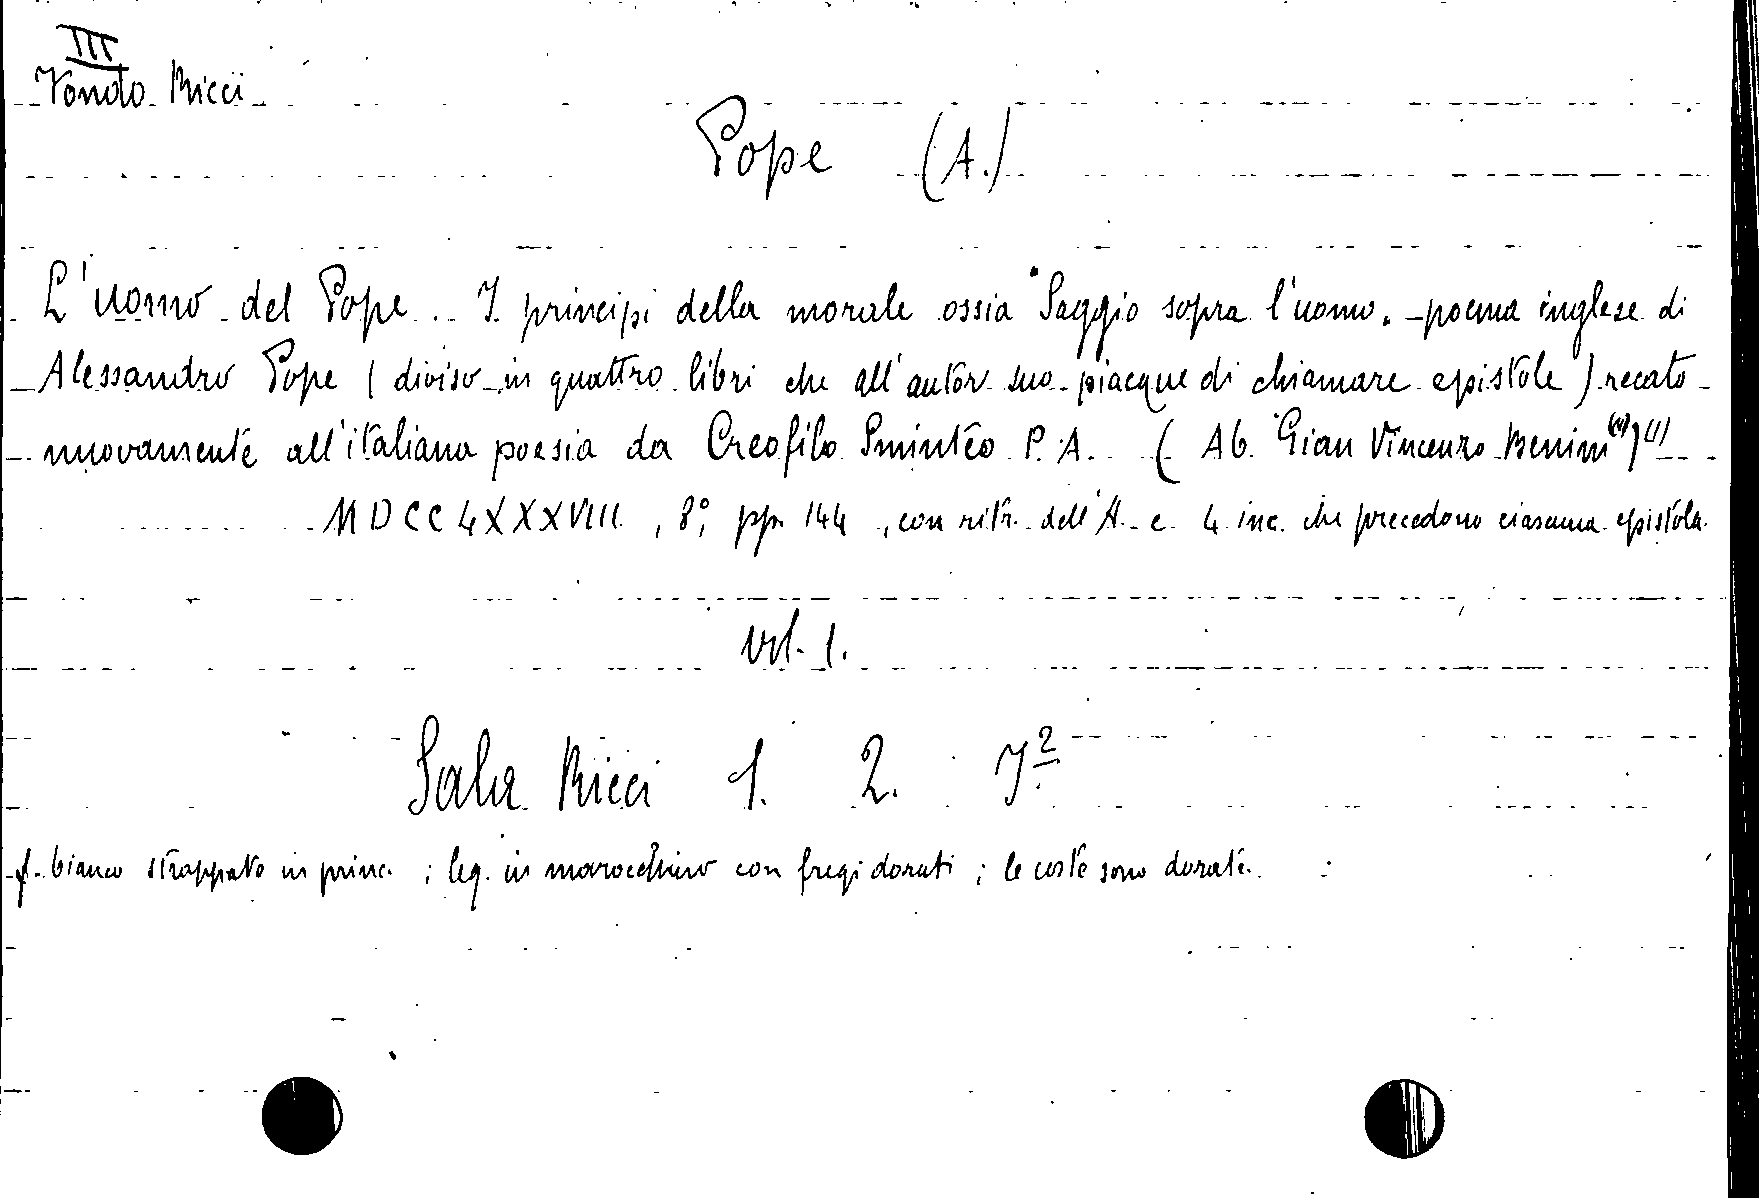 III
Fondo Ricci
Pope (A.)
L'uomo del Pope... I principi della morale ossia Saggio sopra l'uomo. poema inglese di
Alessandro Pope (diviso in quattro libri che all'autor suo piacque di chiamare epistole) recato
nuovamente all'italiana poesia da Creofilo Sminteo P. A. (Ab. Gian Vincenzo Benini) (1)
MDCCLXXXVIII, 8°, pp. 144, con ritr. dell'A. e 4 inc. che precedono ciascuna epistola.
vol. 1.
Sala Ricci 1. 2. 7²
f. bianco strappato in princ. ; leg. in marocchino con fregi dorati ; le coste sono dorate.